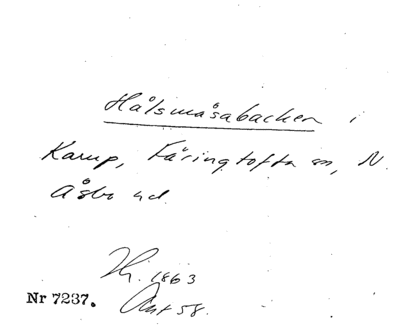 Hålsmåsabacken i
Karup, Färingtofta sn, N.
Åsbo hd.
1863
Nr 7237. Ant 58.